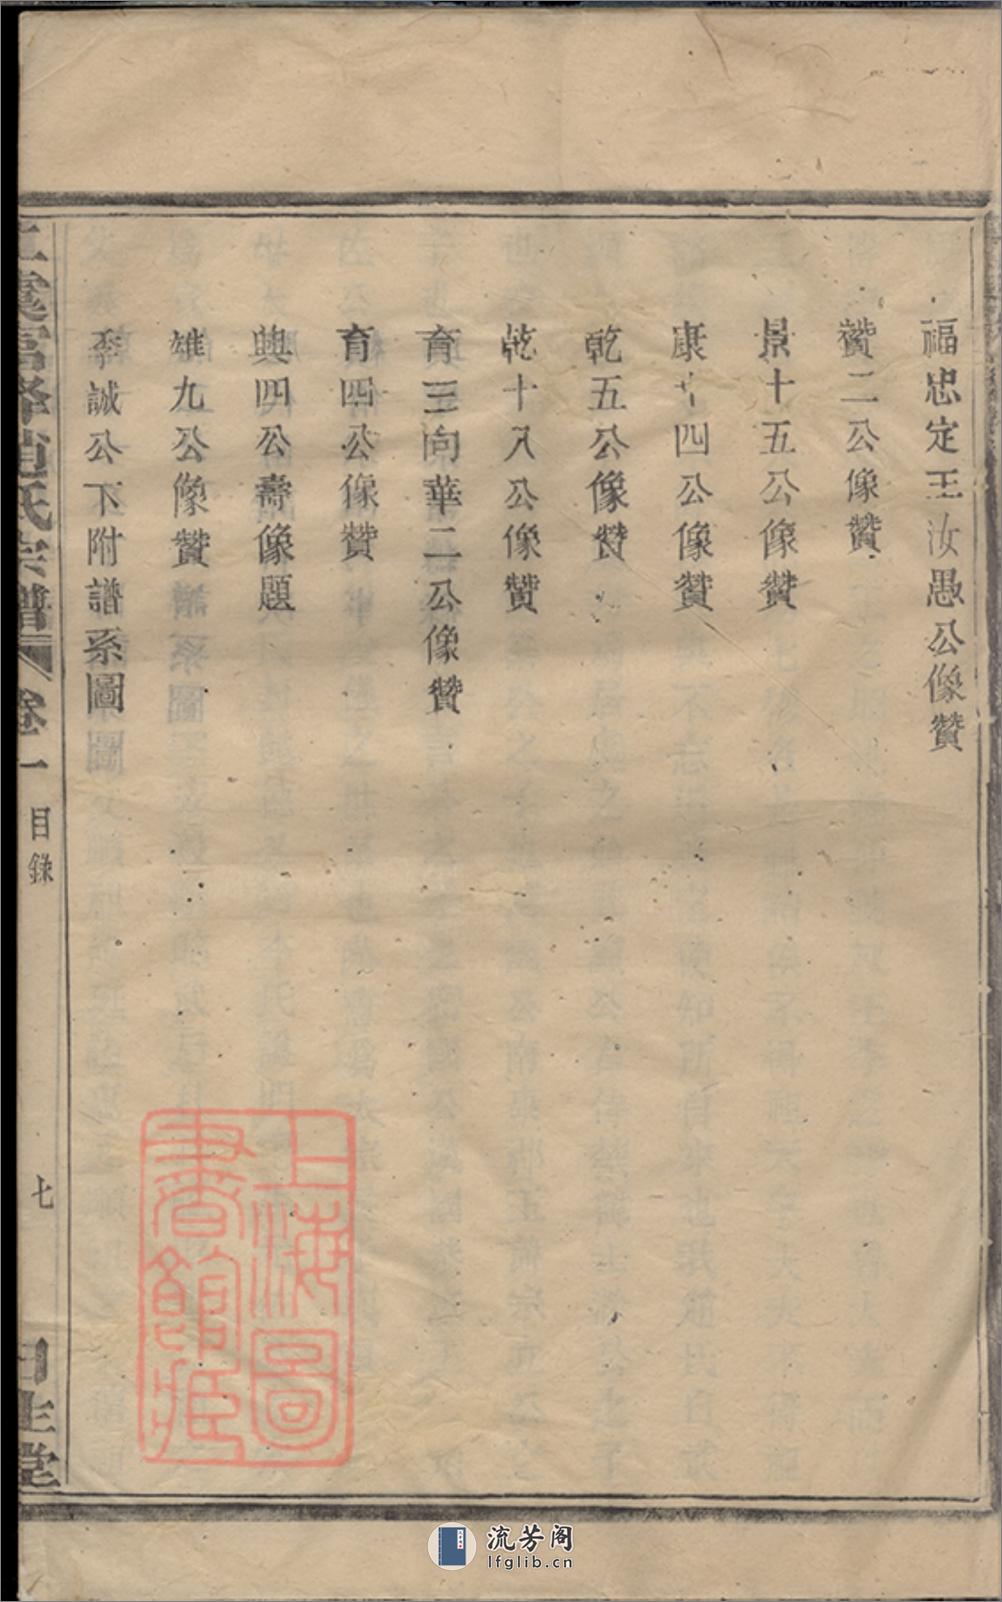 福忠定王汝愚公像贊
贊二公像贊
景十五公像贊
康十四公像贊
乾五公像贊
乾十八公像贊
育三向華二公像贊
育四公像贊
興四公壽像題
雄九公像贊
李誠公下附譜系圖
富峰趙氏宗譜 卷一 目錄 七
生堂
上海圖書館藏
流芳阁
lfglib.cn